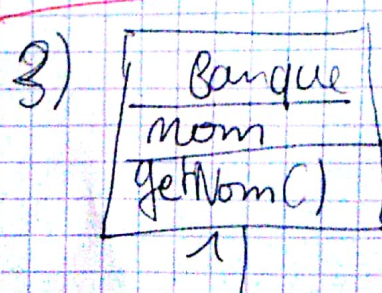 3)
Banque
nom
getNom()
1